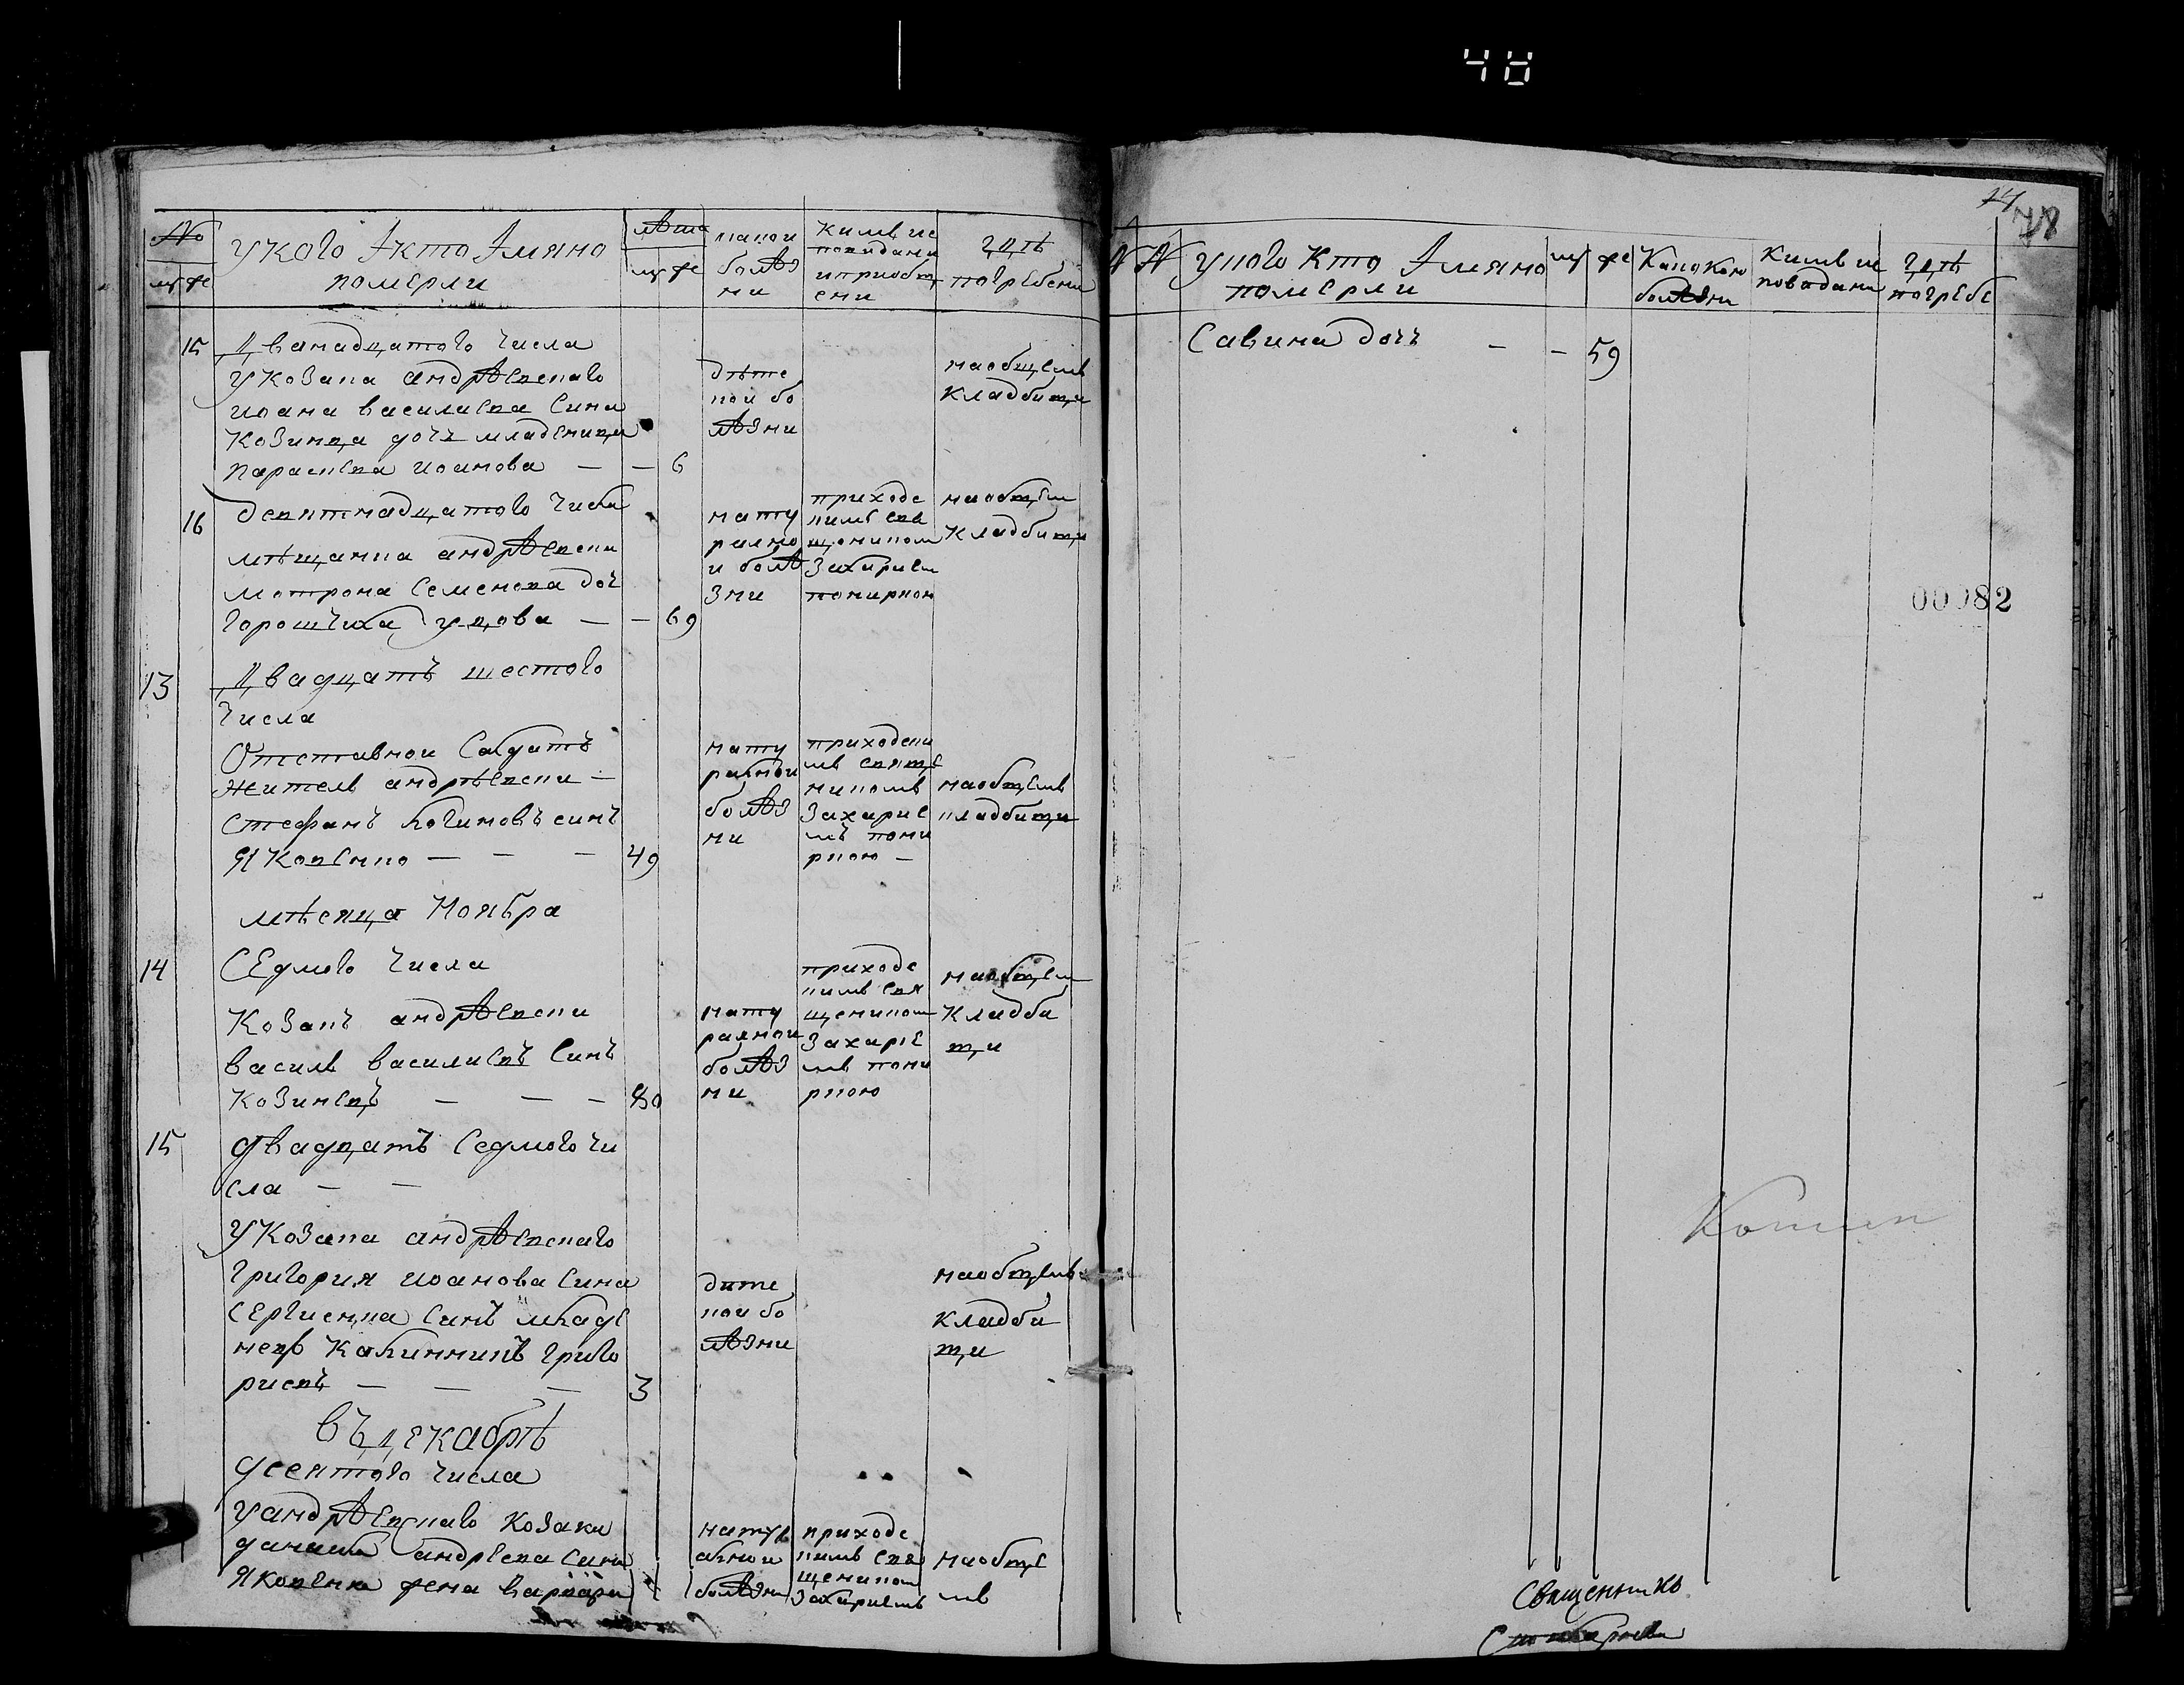 48
14
78
№
му же
У кого И кто Имяно
померли
лѣта
му же
какои
болѣз
ни
Кимъ ис
повидани
и приобщ
ени
гдѣ
погребени
15
Дванадцатого числа
У козака андрѣевскаго
иоана василиева сина
Козинца дочь младеница
Парасиева иоанова — — 6
дѣте
кои бо
лѣзни
на общемъ
кладбищи
16
девятнадцатого числа
мѣщанка андрѣевски
мотрона Семенова доч
Горошчиха удова — — 69
нату
рално
и болѣ
зни
приходс
кимъ свя
щеником
Захарием
понирком
на общем
кладбищи
13
Двадцать шестого
числа
Отставнои Салдатъ
житель андрѣевски —
Стефанъ Логиновъ синъ
Яковенко — — — 49
нату
ралнои
болѣз
ни
приходски
мъ свяще
никомъ
Захарие
мъ пони
ркою —
на общемъ
кладбищи
мѣсяца Ноября
14
СЕдмого числа
Козакъ андрѣевски
василь василиевъ Синъ
Козинецъ — — — 80
нату
ралнои
болѣз
ни
приходс
кимъ свя
щеником
Захарie
мъ пони
ркою
на общем
Кладби
щи
15
двадцать Седмого чи
сла — —
У Козака андрѣевскаго
Григория иоанова Сина
СЕргиенка Синъ младе
нецъ Калинникъ Григо
риевъ — — — 3
дите
кои бо
лѣзни
на общемъ
кладби
щи
въ декабрѣ
десятого числа
У андрѣевскаго козака
данила андреева Сина
Яковенка жена варвара
натур
алнои
болѣзни
приходс
кимъ свя
щеником
Захариемъ
на обще
мъ
№ №
У кого Кто Имяно
померли
му же
Какокою
болѣзни
Кимъ ис
поведани
гдѣ
погребе
Савина дочъ — — 59
00082
Священникъ